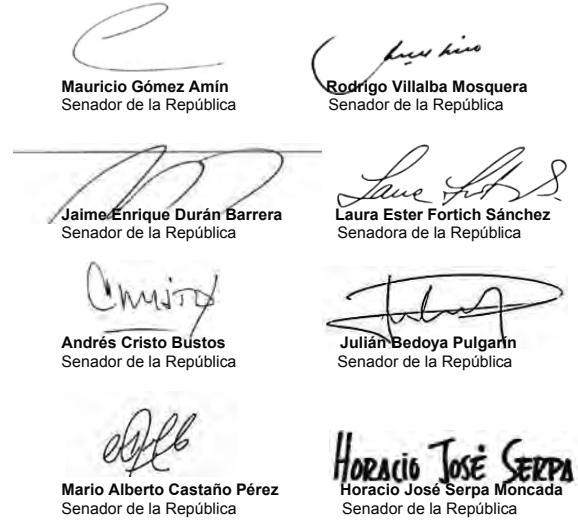 Mauricio Gómez Amín
Senador de la República
Rodrigo Villalba Mosquera
Senador de la República
Jaime Enrique Durán Barrera
Senador de la República
Laura Fortich S.
Laura Ester Fortich Sánchez
Senadora de la República
Andrés Cristo Bustos
Senador de la República
Julián Bedoya Pulgarín
Senador de la República
Mario Alberto Castaño Pérez
Senador de la República
HORACIO JOSÉ SERPA
Horacio José Serpa Moncada
Senador de la República